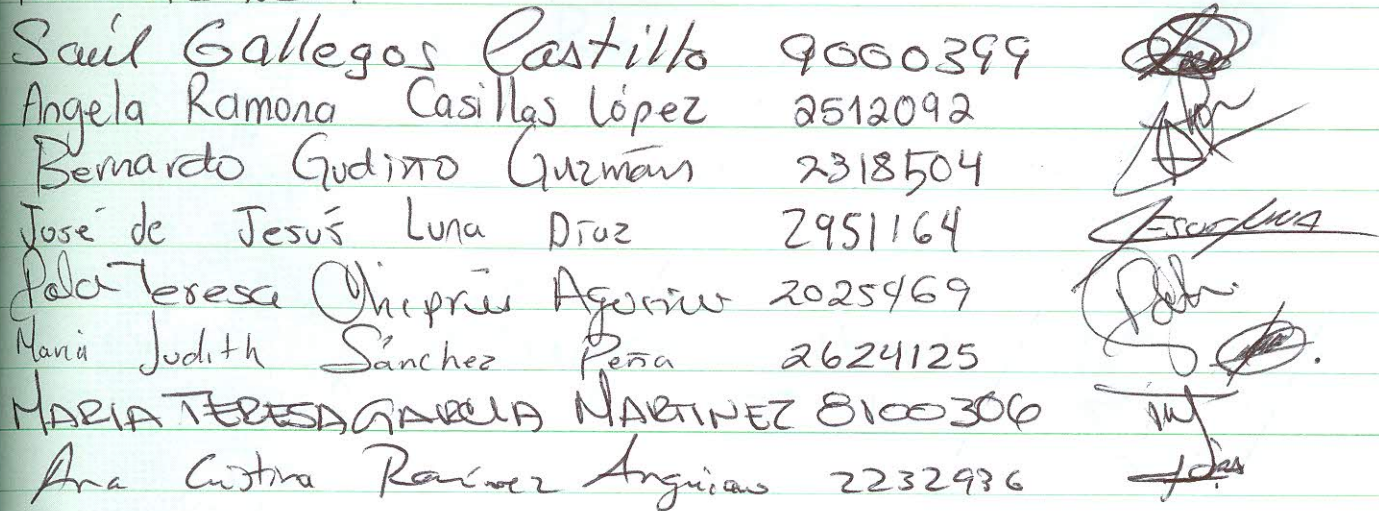 Saúl Gallegos Castillo 9000399
Angela Ramona Casillas López 2512092
Bernardo Gudiño Guzmán 2318504
José de Jesús Luna Díaz 2951164
Teresa 2025469
Maria Judith Sánchez Peña 2624125
MARIA TERESA GARCIA MARTINEZ 8100306
Ana Cristina Ramírez Anguiano 2232936